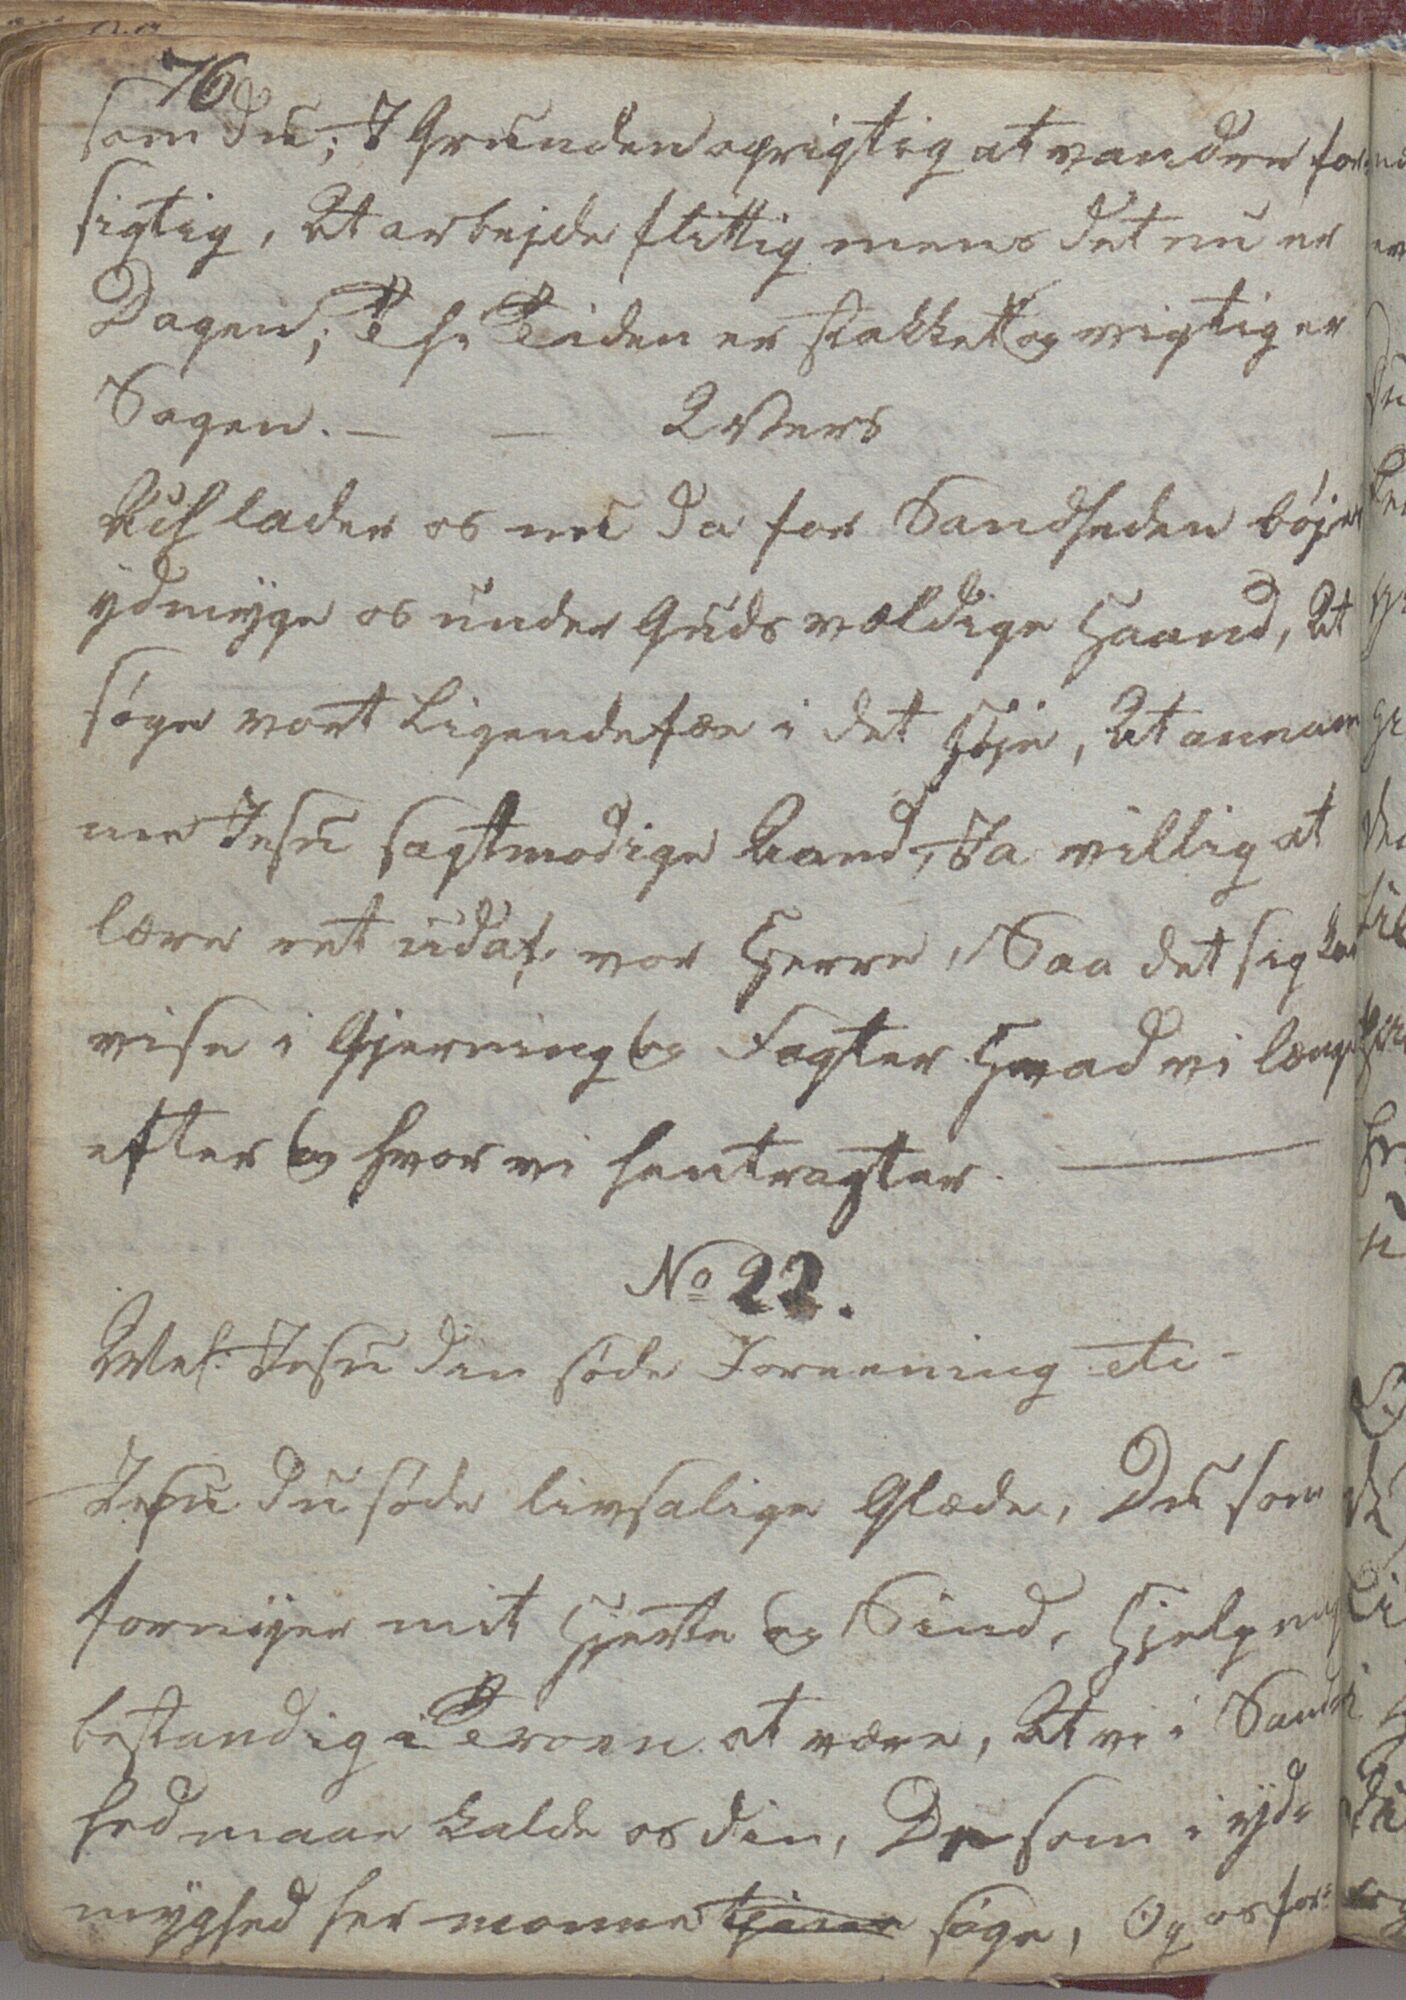 76
som du; I Grunden oprigtig at vandre for
sigtig, At arbejde flittig mens det nu er
Dagen; Thi Tiden er stakket og vigtig er
Sagen. — — 2 Vers
Ach lader os nu da for Sandheden bøje
ydmyge os under Guds vældige Haand, At
søge vort Ligendefæe i det Høje, At annam
me Jesu sagtmodige Aand, Ja villig at
lære ret udaf vor Herre, Saa det sig kan
vise i Gjerning og Fagter Hvad vi længe
efter og hvor vi hentragter. —
No 22.
Mel. Jesu din søde Foreening etc -
Jesu du søde livsalige Glæde, Du som
fornøyer mit Hjerte og Sind, Hjelp mig
bestandig i Troen at være, At vi i Sand
hed maae kalde os din, De som i yd=
myghed her monne søge, Og os for=